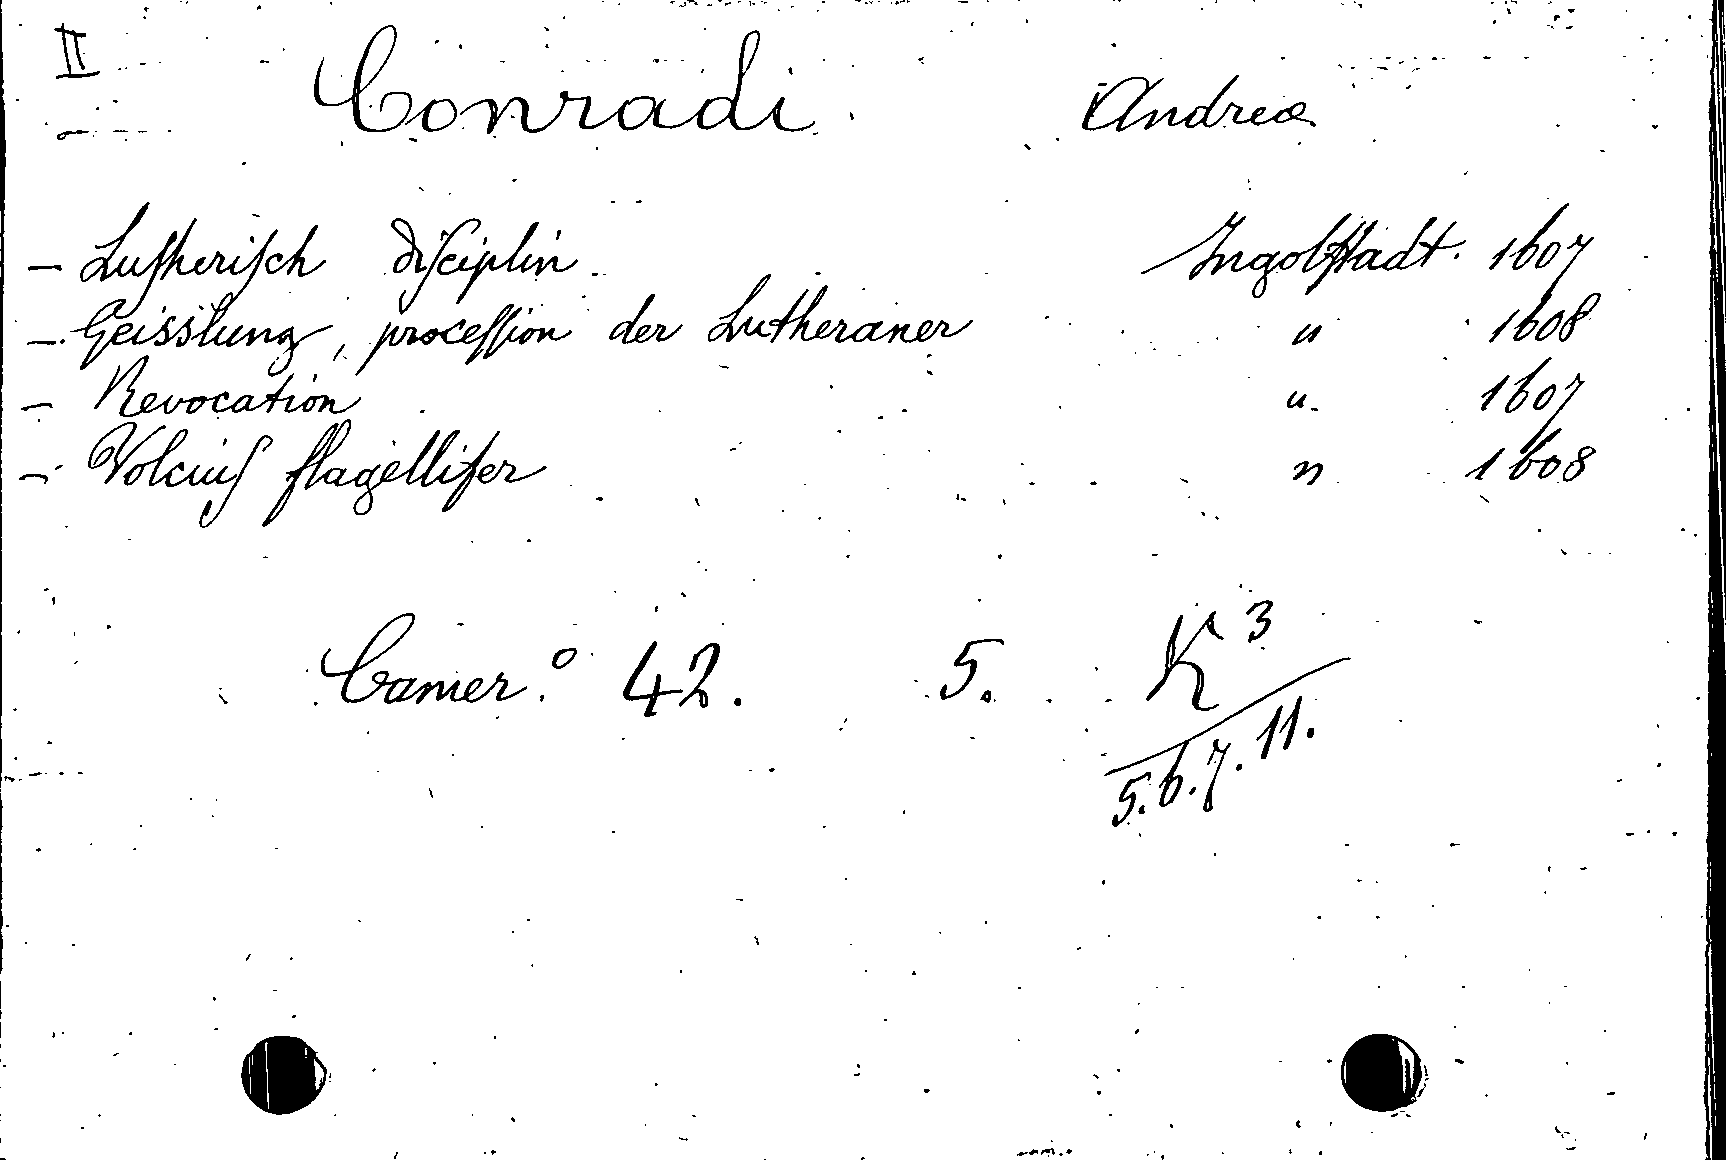 II
Conradi Andrea
- Lutherisch disciplin. Ingolstadt. 1607
- Geisslung, procession der Lutheraner " 1608
- Revocation " 1607
- Volcius flagellifer " 1608
Camer.° 42. 5. K 3
5.6.7.11.